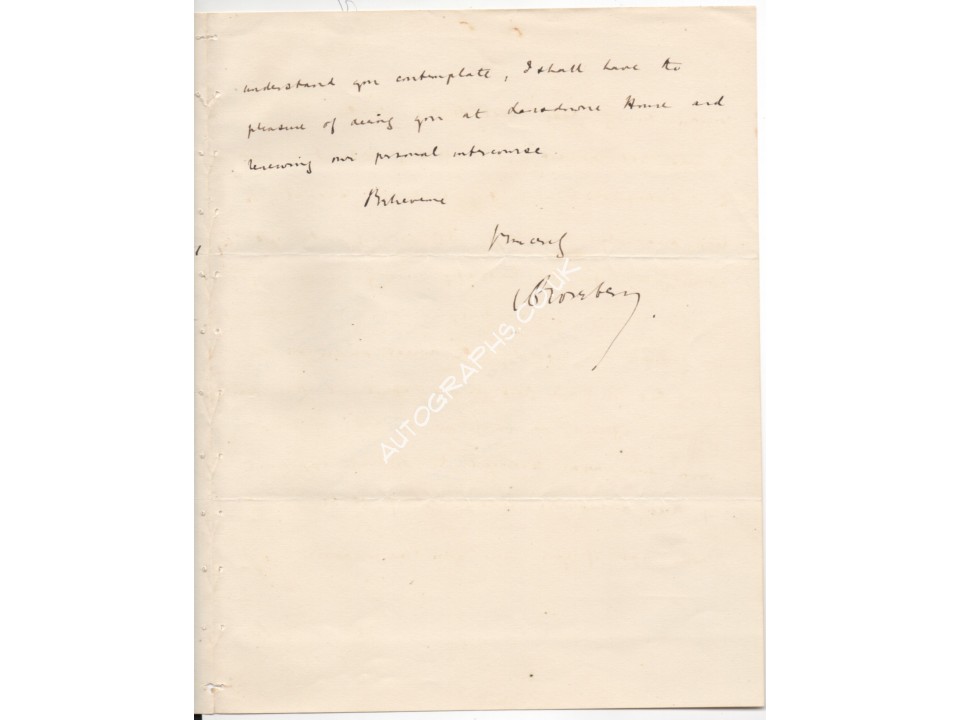 understand you contemplate, I shall have the
pleasure of seeing you at Lansdowne House and
renewing our personal intercourse.
Believe me
Yours
Rosebery
AUTOGRAPHS.CO.UK